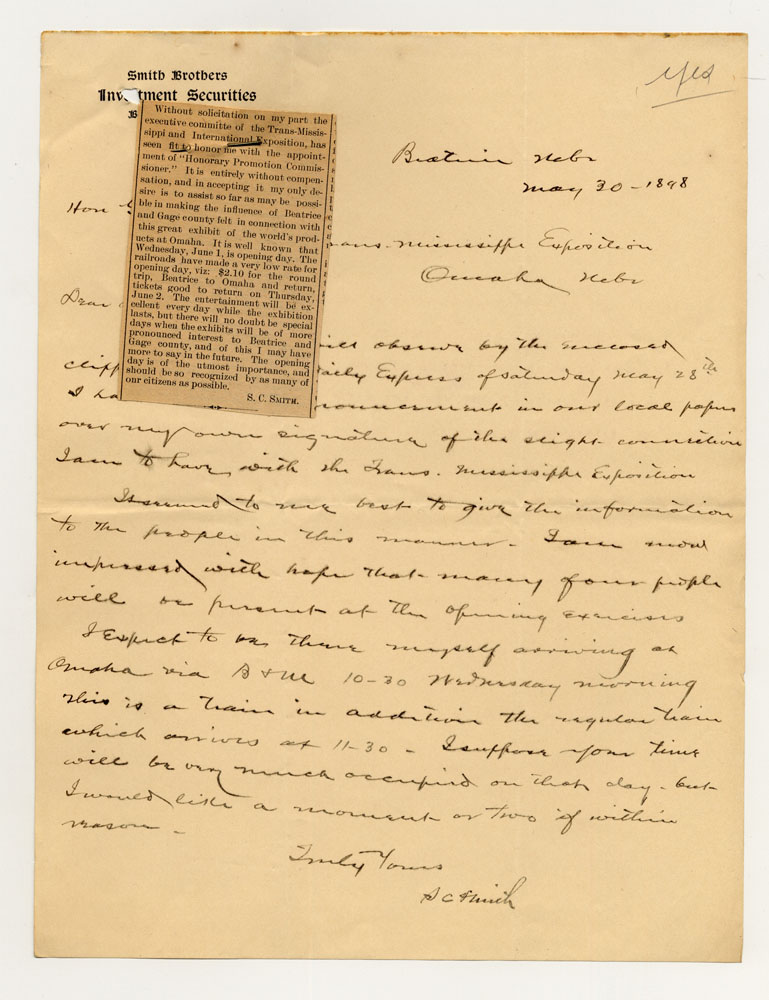 Smith Brothers
Investment Securities
B
yes
Without solicitation on my part the
executive committe of the Trans-Missis-
sippi and International Exposition, has
seen fit to honor me with the appoint-
ment of "Honorary Promotion Commis-
sioner." It is entirely without compen-
sation, and in accepting it my only de-
sire is to assist so far as may be possi-
ble in making the influence of Beatrice
and Gage county felt in connection with
this great exhibit of the world's prod-
ucts at Omaha. It is well known that
Wednesday, June 1, is opening day. The
railroads have made a very low rate for
opening day, viz: $2.10 for the round
trip, Beatrice to Omaha and return,
tickets good to return on Thursday,
June 2. The entertainment will be ex-
cellent every day while the exhibition
lasts, but there will no doubt be special
days when the exhibits will be of more
pronounced interest to Beatrice and
Gage county, and of this I may have
more to say in the future. The opening
day is of the utmost importance, and
should be so recognized by as many of
our citizens as possible.
S. C. SMITH.
Beatrice Nebr
May 30 - 1898
Hon
rans. Mississippi Exposition
Omaha Nebr
Dear
ill observe by the enclosed
clipp aily Express of Saturday May 28th
I ha nouncement in our local papers
over my own signature of the slight connection
I am to have with the Trans. Mississippi Exposition
It seemed to me best to give the information
to the people in this manner. I am now
impressed with hope that many of our people
will be present at the opening exercises
I expect to be there myself arriving at
Omaha via B & M 10-30 Wednesday morning
This is a train in addition the regular train
which arrives at 11-30 - I suppose your time
will be very much occupied on that day - but
I would like a moment or two if within
reason -
Truly Yours
S C Smith